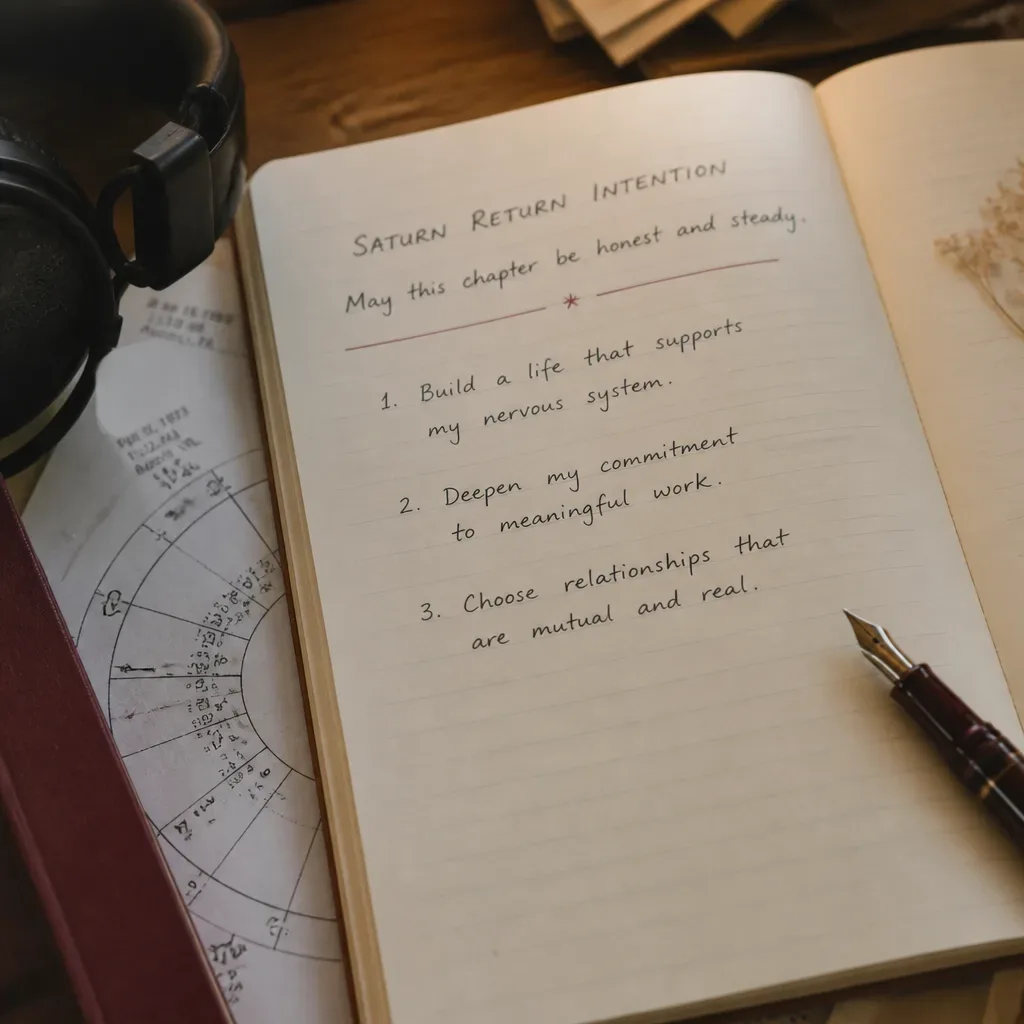 SATURN RETURN INTENTION
May this chapter be honest and steady.
1. Build a life that supports
my nervous system.
2. Deepen my commitment
to meaningful work.
3. Choose relationships that
are mutual and real.